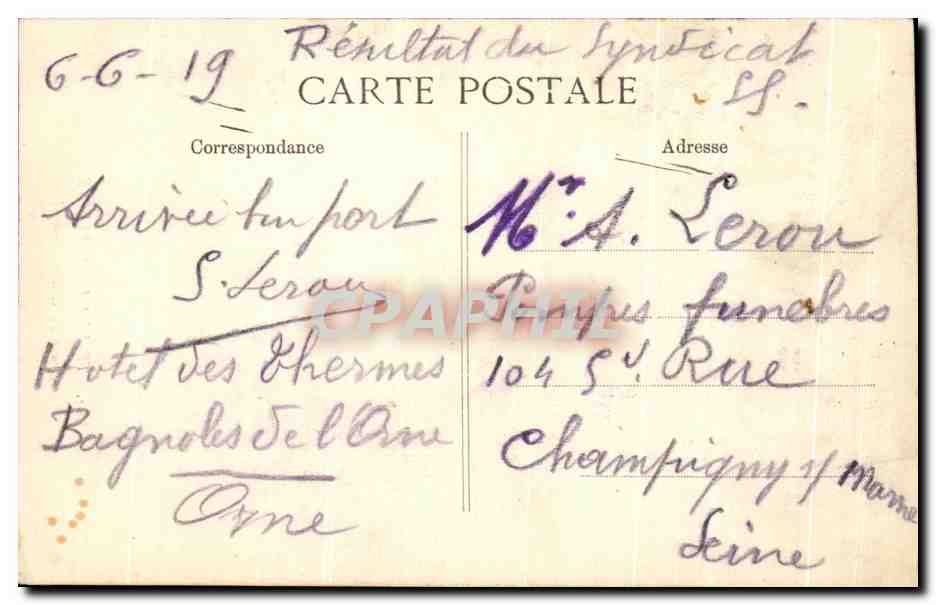 6-6-19 Résultat du Syndicat
CARTE POSTALE
SS.
Correspondance
Arrivée bon port
S. Lerou
Hotel des Thermes
Bagnoles de l'Orne
Orne
Adresse
Mr. A. Lerou
Pompes funebres
104 Gd. Rue
Champigny s/ Marne
Seine
CPAPHIL